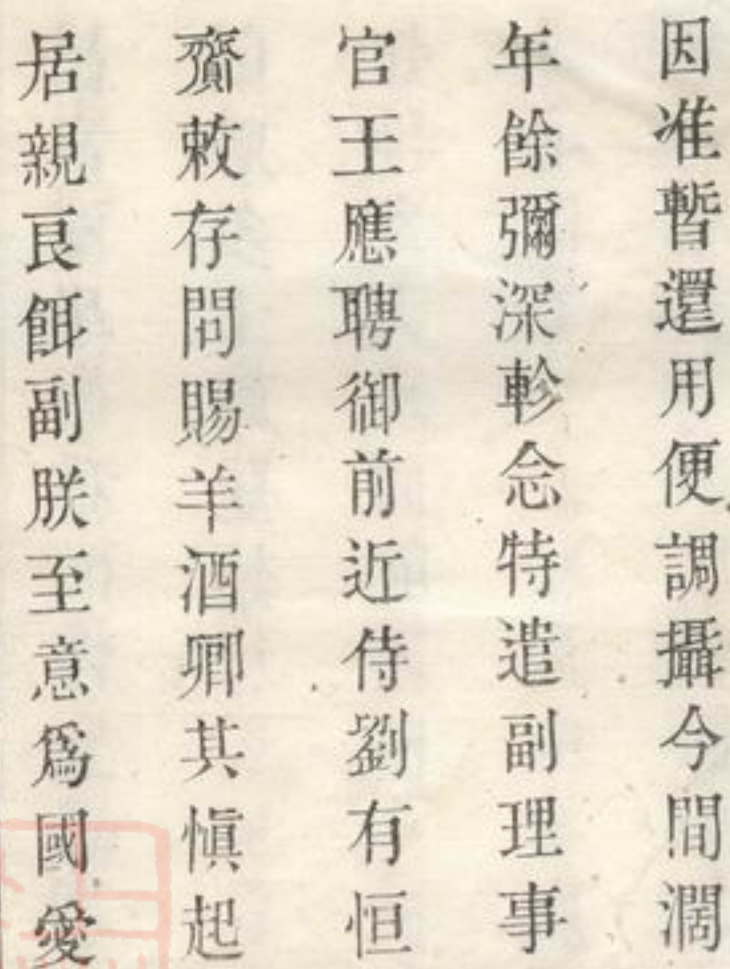 因准暫還用便調攝今間濶
年餘彌深軫念特遣副理事
官王應聘御前近侍劉有恒
齎敕存問賜羊酒卿其愼起
居親良餌副朕至意爲國愛